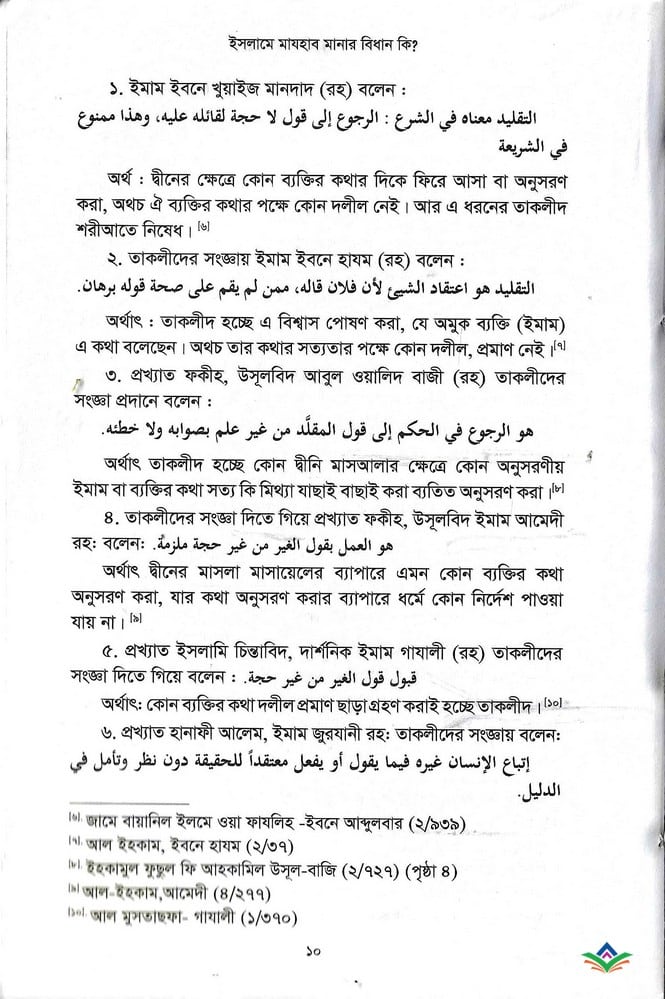 ইসলামে মাযহাব মানার বিধান কি?
১. ইমাম ইবনে খুয়াইজ মানদাদ (রহ) বলেন :
التقليد معناه في الشرع : الرجوع إلى قول لا حجة لقائله عليه، وهذا ممنوع
في الشريعة
অর্থ : দ্বীনের ক্ষেত্রে কোন ব্যক্তির কথার দিকে ফিরে আসা বা অনুসরণ
করা, অথচ ঐ ব্যক্তির কথার পক্ষে কোন দলীল নেই। আর এ ধরনের তাকলীদ
শরীআতে নিষেধ। [৬]
২. তাকলীদের সংজ্ঞায় ইমাম ইবনে হাযম (রহ) বলেন :
التقليد هو اعتقاد الشيئ لأن فلان قاله، ممن لم يقم على صحة قوله برهان.
অর্থাৎ : তাকলীদ হচ্ছে এ বিশ্বাস পোষণ করা, যে অমুক ব্যক্তি (ইমাম)
এ কথা বলেছেন। অথচ তার কথার সত্যতার পক্ষে কোন দলীল, প্রমাণ নেই।[৭]
৩. প্রখ্যাত ফকীহ, উসূলবিদ আবুল ওয়ালিদ বাজী (রহ) তাকলীদের
সংজ্ঞা প্রদানে বলেন :
هو الرجوع في الحكم إلى قول المقلَّد من غير علم بصوابه ولا خطئه.
অর্থাৎ তাকলীদ হচ্ছে কোন দ্বীনি মাসআলার ক্ষেত্রে কোন অনুসরণীয়
ইমাম বা ব্যক্তির কথা সত্য কি মিথ্যা যাছাই বাছাই করা ব্যতিত অনুসরণ করা।[৮]
৪. তাকলীদের সংজ্ঞা দিতে গিয়ে প্রখ্যাত ফকীহ, উসূলবিদ ইমাম আমেদী
রহ: বলেন: هو العمل بقول الغير من غير حجة ملزمة.
অর্থাৎ দ্বীনের মাসলা মাসায়েলের ব্যাপারে এমন কোন ব্যক্তির কথা
অনুসরণ করা, যার কথা অনুসরণ করার ব্যাপারে ধর্মে কোন নির্দেশ পাওয়া
যায় না। [৯]
৫. প্রখ্যাত ইসলামি চিন্তাবিদ, দার্শনিক ইমাম গাযালী (রহ) তাকলীদের
সংজ্ঞা দিতে গিয়ে বলেন : قبول قول الغير من غير حجة.
অর্থাৎ: কোন ব্যক্তির কথা দলীল প্রমাণ ছাড়া গ্রহণ করাই হচ্ছে তাকলীদ।[১০]
৬. প্রখ্যাত হানাফী আলেম, ইমাম জুরযানী রহ: তাকলীদের সংজ্ঞায় বলেন:
إتباع الإنسان غيره فيما يقول أو يفعل معتقداً للحقيقة دون نظر وتأمل في
الدليل.
[৬]. জামে বায়ানিল ইলমে ওয়া ফাযলিহ -ইবনে আব্দুলবার (২/৯৩৯)
[৭]. আল ইহকাম, ইবনে হাযম (২/৩৭)
[৮]. ইহকামুল ফুছুল ফি আহকামিল উসূল-বাজি (২/৭২৭) (পৃষ্ঠা ৪)
[৯]. আল-ইহকাম,আমেদী (৪/২৭৭)
[১০]. আল মুসতাছফা- গাযালী (১/৩৭০)
১০